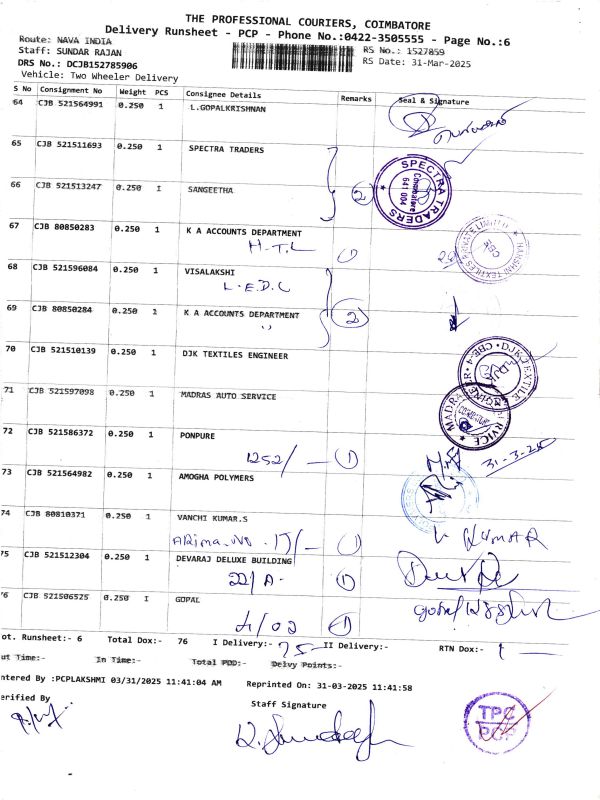 THE PROFESSIONAL COURIERS, COIMBATORE
Delivery Runsheet - PCP - Phone No.:0422-3505555 - Page No.:6
Route: NAVA INDIA
Staff: SUNDAR RAJAN
RS No.: 1527859
DRS No.: DCJB152785906
RS Date: 31-Mar-2025
Vehicle: Two Wheeler Delivery
S No Consignment No Weight PCS Consignee Details Remarks Seal & Signature
64 CJB 521564991 0.250 1 L.GOPALKRISHNAN
65 CJB 521511693 0.250 1 SPECTRA TRADERS
SPECTRA TRADERS Coimbatore 641 004
66 CJB 521513247 0.250 I SANGEETHA 2
67 CJB 80850283 0.250 1 K A ACCOUNTS DEPARTMENT
H.T.L 1
68 CJB 521596084 0.250 1 VISALAKSHI
L.E.D.L
69 CJB 80850284 0.250 1 K A ACCOUNTS DEPARTMENT 2
"
70 CJB 521510139 0.250 1 DJK TEXTILES ENGINEER
71 CJB 521597098 0.250 1 MADRAS AUTO SERVICE
72 CJB 521586372 0.250 1 PONPURE
1252/ 1
31-3-25
73 CJB 521564982 0.250 1 AMOGHA POLYMERS
74 CJB 80810371 0.250 1 VANCHI KUMAR.S
KUMAR
75 CJB 521512304 0.250 1 DEVARAJ DELUXE BUILDING
22/A 1
76 CJB 521506525 0.250 I GOPAL
1
ot. Runsheet:- 6 Total Dox:- 76 I Delivery:- 75 II Delivery:- RTN Dox:- 1
ut Time:- In Time:- Total POD:- Delvy Points:-
ntered By :PCPLAKSHMI 03/31/2025 11:41:04 AM Reprinted On: 31-03-2025 11:41:58
erified By
Staff Signature
TPC
PCP